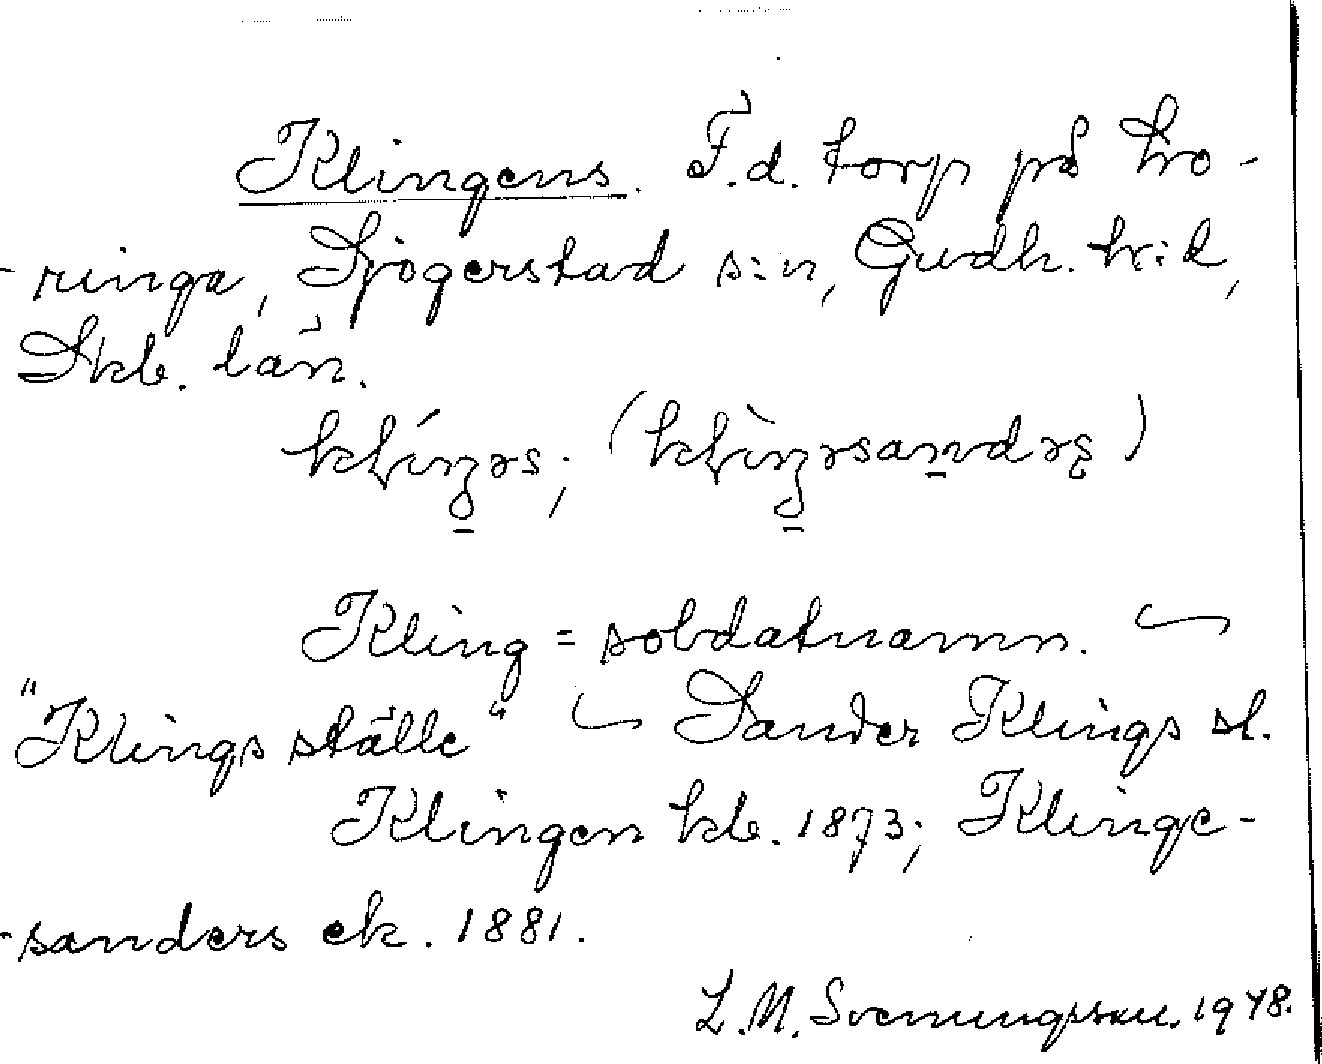 Klingens. F.d. torp på Tro-
-ringa, Sjögerstad s:n, Gudh. h:d,
Skb. län.
Kling = soldatnamn.
"Klings ställe" Sander Klings st.
Klingen kb. 1873; Klinge-
-sanders ek. 1881.
L.M. Svenungsson. 1948.